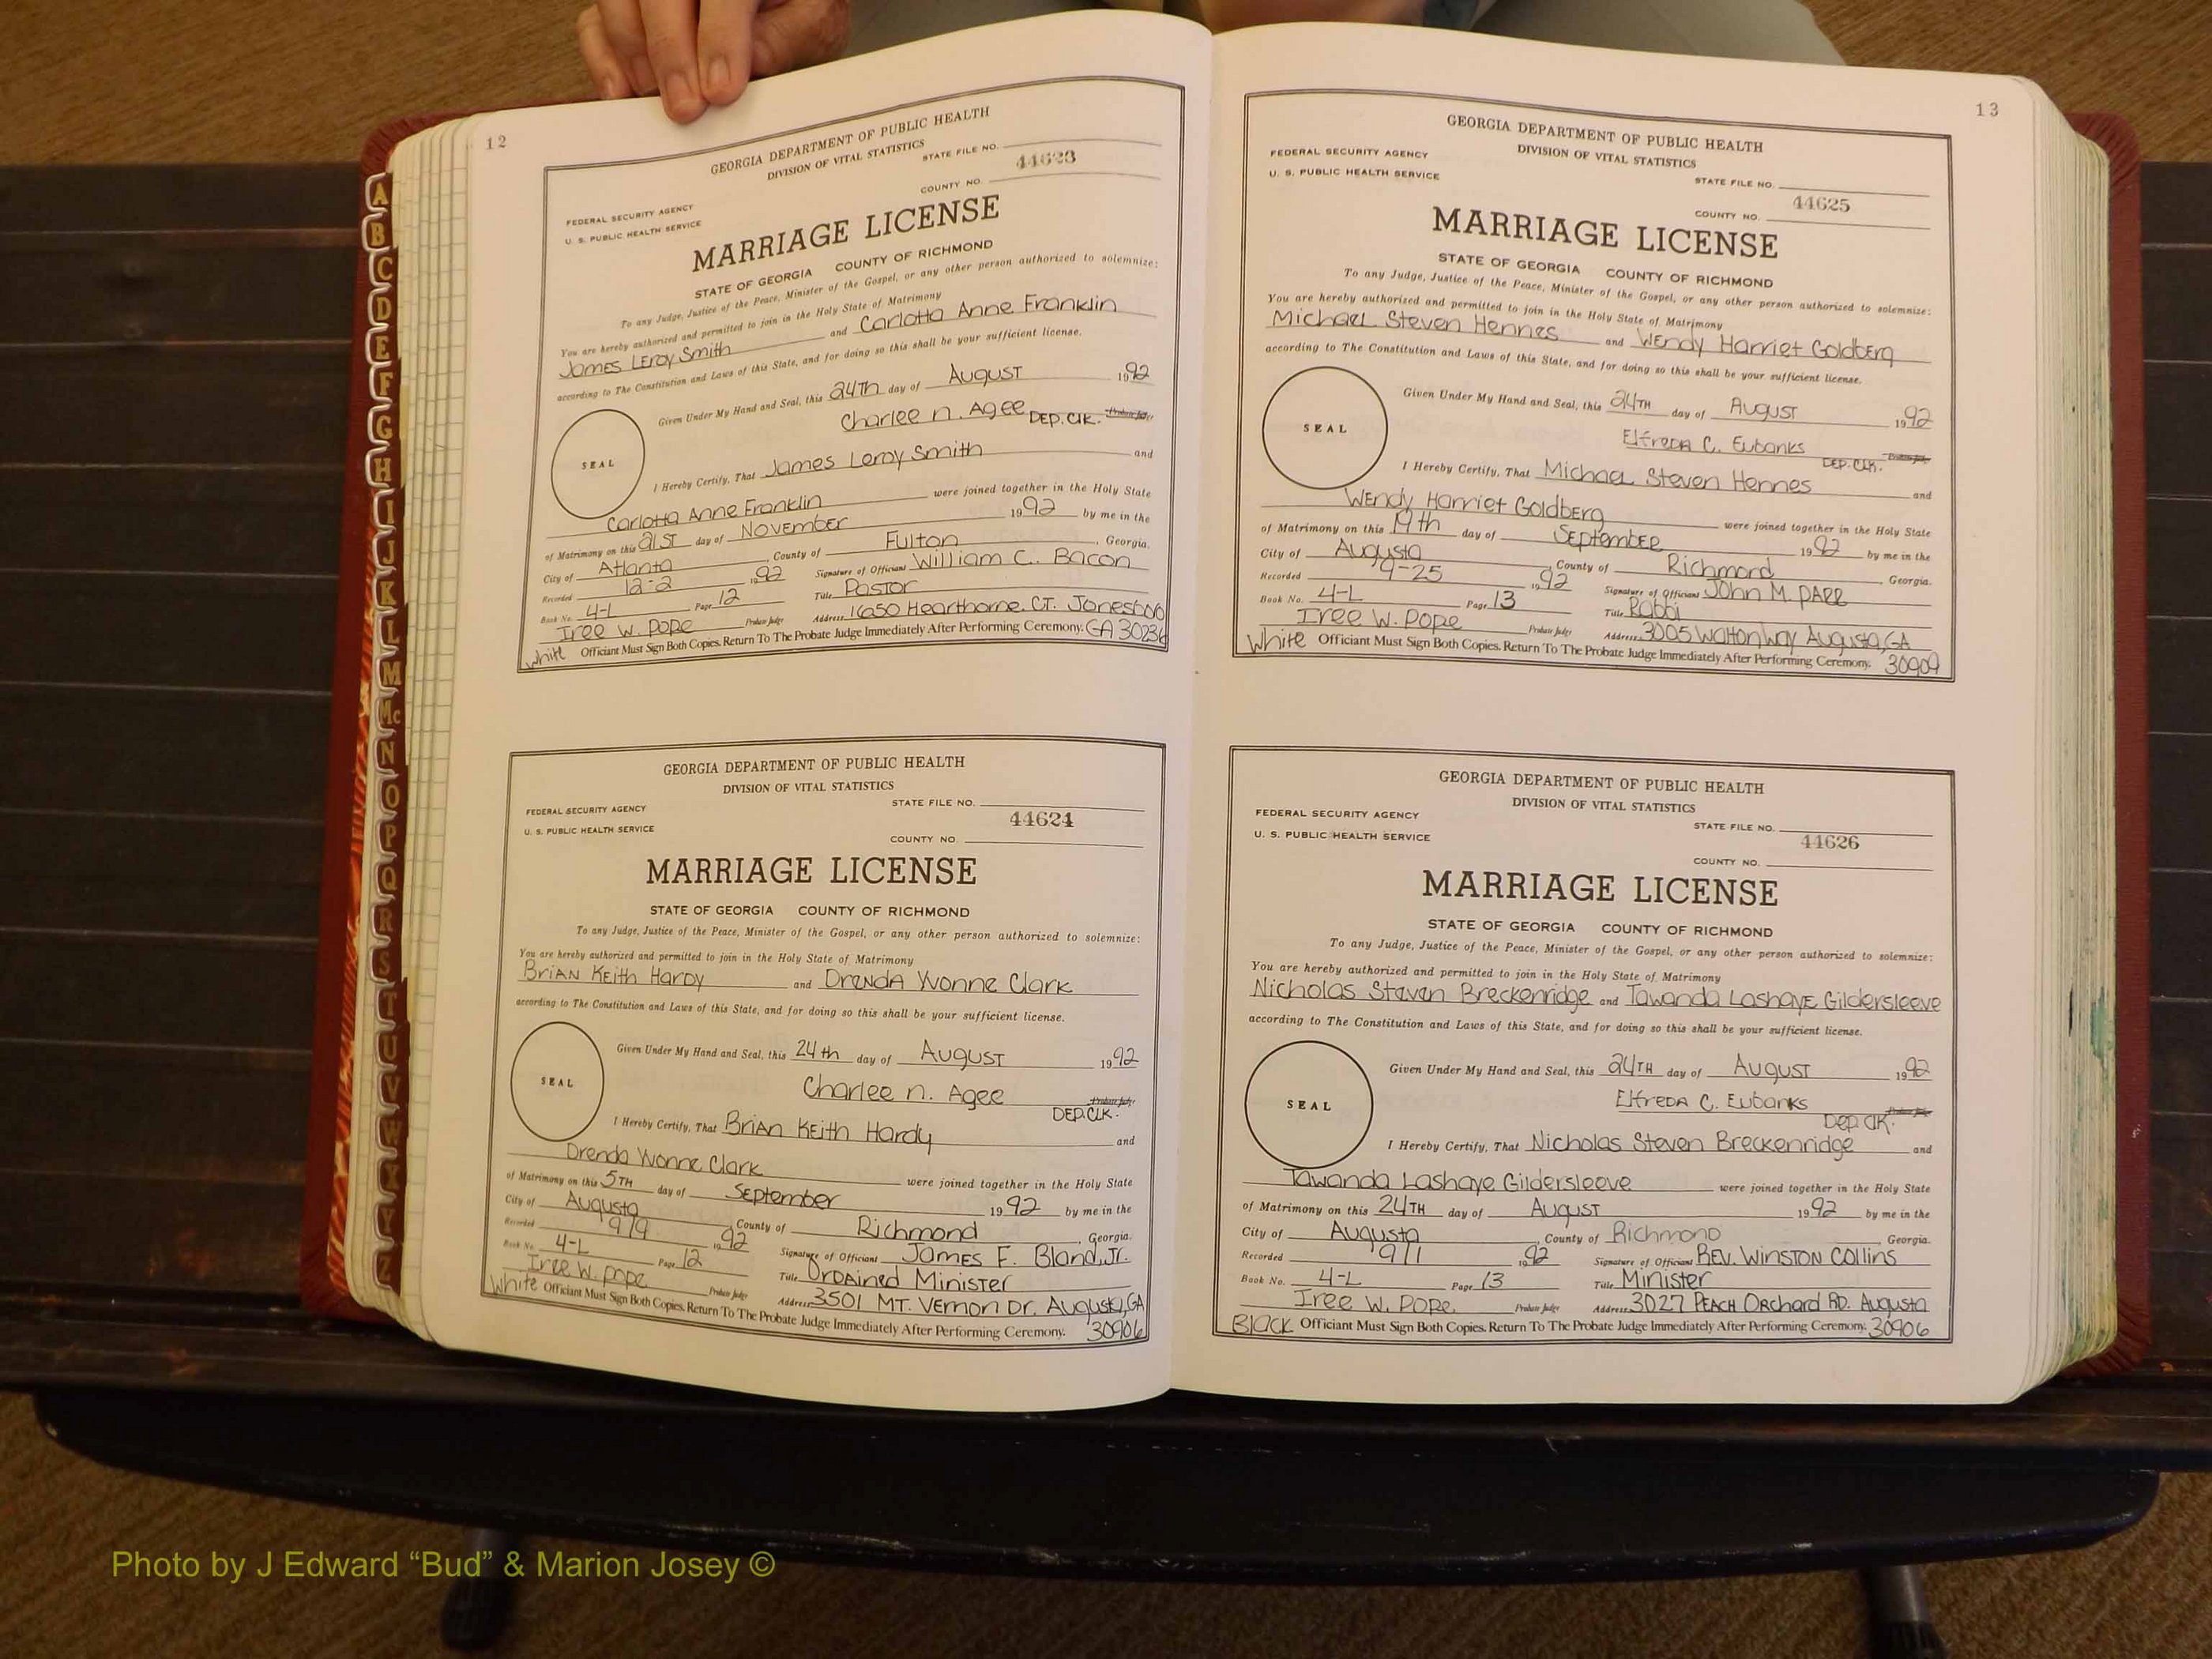 12
GEORGIA DEPARTMENT OF PUBLIC HEALTH
DIVISION OF VITAL STATISTICS
STATE FILE NO.
44623
COUNTY NO.
FEDERAL SECURITY AGENCY
U. S. PUBLIC HEALTH SERVICE
MARRIAGE LICENSE
STATE OF GEORGIA COUNTY OF RICHMOND
To any Judge, Justice of the Peace, Minister of the Gospel, or any other person authorized to solemnize:
You are hereby authorized and permitted to join in the Holy State of Matrimony
James Leroy Smith and Carlotta Anne Franklin
according to The Constitution and Laws of this State, and for doing so this shall be your sufficient license.
Given Under My Hand and Seal, this 24TH day of August 1992
Charlee n. Agee DEP. Clk. Probate Judge
SEAL
I Hereby Certify, That James Leroy Smith and
Carlotta Anne Franklin were joined together in the Holy State
of Matrimony on this 21ST day of November 1992 by me in the
City of Atlanta County of Fulton, Georgia.
Recorded 12-2 1992 Signature of Officiant William C. Bacon
Book No. 4-L Page 12 Title Pastor
Iree W. Pope Probate Judge Address 1650 Hearthorne CT. Jonesboro
White Officiant Must Sign Both Copies. Return To The Probate Judge Immediately After Performing Ceremony. GA 30236
GEORGIA DEPARTMENT OF PUBLIC HEALTH
DIVISION OF VITAL STATISTICS
FEDERAL SECURITY AGENCY
STATE FILE NO.
44624
U. S. PUBLIC HEALTH SERVICE
COUNTY NO.
MARRIAGE LICENSE
STATE OF GEORGIA COUNTY OF RICHMOND
To any Judge, Justice of the Peace, Minister of the Gospel, or any other person authorized to solemnize:
You are hereby authorized and permitted to join in the Holy State of Matrimony
Brian Keith Hardy and Drenda Yvonne Clark
according to The Constitution and Laws of this State, and for doing so this shall be your sufficient license.
Given Under My Hand and Seal, this 24th day of August 1992
Charlee n. Agee Probate Judge
DEP. CLK.
SEAL
I Hereby Certify, That Brian Keith Hardy and
Drenda Yvonne Clark were joined together in the Holy State
of Matrimony on this 5TH day of September 1992 by me in the
City of Augusta County of Richmond, Georgia.
Recorded 9/9 1992 Signature of Officiant James F. Bland, Jr.
Book No. 4-L Page 12 Title Ordained Minister
Iree W. Pope Probate Judge Address 3501 MT. Vernon Dr. Augusta, GA
White Officiant Must Sign Both Copies. Return To The Probate Judge Immediately After Performing Ceremony. 30906
13
GEORGIA DEPARTMENT OF PUBLIC HEALTH
DIVISION OF VITAL STATISTICS
FEDERAL SECURITY AGENCY
U. S. PUBLIC HEALTH SERVICE
STATE FILE NO.
44625
COUNTY NO.
MARRIAGE LICENSE
STATE OF GEORGIA COUNTY OF RICHMOND
To any Judge, Justice of the Peace, Minister of the Gospel, or any other person authorized to solemnize:
You are hereby authorized and permitted to join in the Holy State of Matrimony
Michael Steven Hennes and Wendy Harriet Goldberg
according to The Constitution and Laws of this State, and for doing so this shall be your sufficient license.
Given Under My Hand and Seal, this 24TH day of August 1992
Elfreda C. Eubanks Probate Judge
DEP. CLK.
SEAL
I Hereby Certify, That Michael Steven Hennes and
Wendy Harriet Goldberg were joined together in the Holy State
of Matrimony on this 19th day of September 1992 by me in the
City of Augusta County of Richmond, Georgia.
Recorded 9-25 1992 Signature of Officiant John M. Parr
Book No. 4-L Page 13 Title Rabbi
Iree W. Pope Probate Judge Address 3005 Walton Way Augusta, GA
White Officiant Must Sign Both Copies. Return To The Probate Judge Immediately After Performing Ceremony. 30909
GEORGIA DEPARTMENT OF PUBLIC HEALTH
DIVISION OF VITAL STATISTICS
FEDERAL SECURITY AGENCY
STATE FILE NO.
U. S. PUBLIC HEALTH SERVICE
44626
COUNTY NO.
MARRIAGE LICENSE
STATE OF GEORGIA COUNTY OF RICHMOND
To any Judge, Justice of the Peace, Minister of the Gospel, or any other person authorized to solemnize:
You are hereby authorized and permitted to join in the Holy State of Matrimony
Nicholas Steven Breckenridge and Tawanda Lashaye Gildersleeve
according to The Constitution and Laws of this State, and for doing so this shall be your sufficient license.
Given Under My Hand and Seal, this 24TH day of August 1992
Elfreda C. Eubanks Probate Judge
Dep. Clk.
SEAL
I Hereby Certify, That Nicholas Steven Breckenridge and
Tawanda Lashaye Gildersleeve were joined together in the Holy State
of Matrimony on this 24TH day of August 1992 by me in the
City of Augusta County of Richmond, Georgia.
Recorded 9/1 1992 Signature of Officiant Rev. Winston Collins
Book No. 4-L Page 13 Title Minister
Iree W. Pope Probate Judge Address 3027 Peach Orchard RD. Augusta
Black Officiant Must Sign Both Copies. Return To The Probate Judge Immediately After Performing Ceremony. 30906
A
B
C
D
E
F
G
H
I
J
K
L
M
Mc
N
O
P
Q
R
S
T
U
V
W
X
Y
Z
Photo by J Edward “Bud” & Marion Josey ©